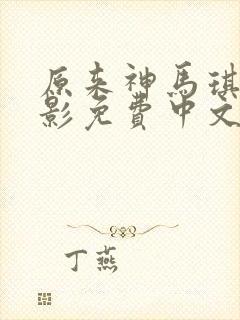 原来神馬琪
影免費中文
丁燕